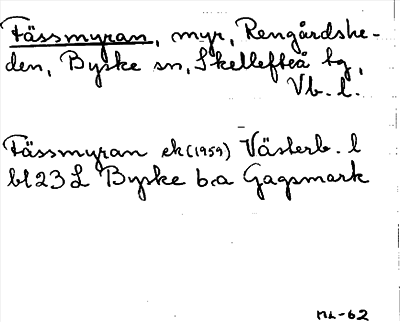 Fässmyran, myr, Rengårdshe-
den, Byske sn, Skellefteå tg,
Vb. l.
Fässmyran ek (1959) Västerb. l
bl 23 L Byske b:a Gagsmark
ML-62